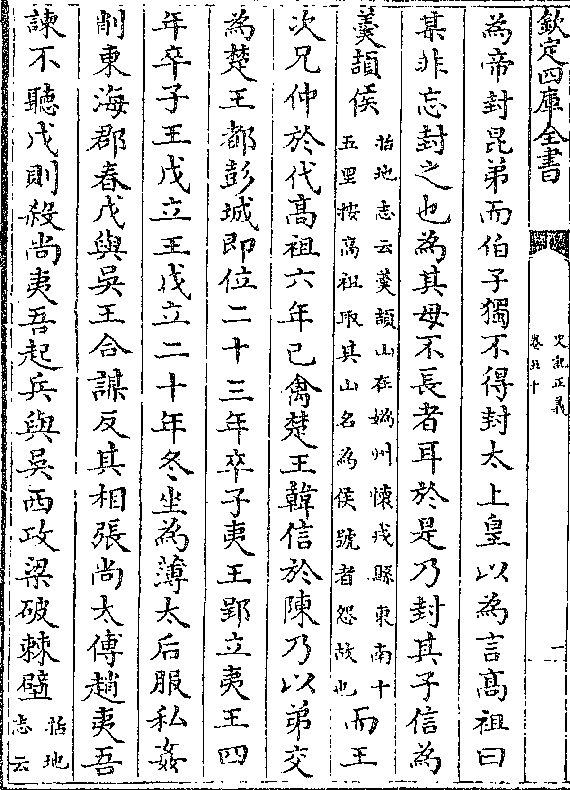 欽定四庫全書
史記正義
卷五十
一
為帝封昆弟而伯子獨不得封太上皇以為言高祖曰
某非忘封之也為其母不長者耳於是乃封其子信為
羹頡侯
括地志云羹頡山在媯州懷戎縣東南十
五里按高祖取其山名為侯號者怨故也
而王
次兄仲於代高祖六年已禽楚王韓信於陳乃以弟交
為楚王都彭城即位二十三年卒子夷王郢立夷王四
年卒子王戊立王戊立二十年冬坐為薄太后服私姦
削東海郡春戊與吳王合謀反其相張尚太傅趙夷吾
諫不聽戊則殺尚夷吾起兵與吳西攻梁破棘壁
括地
志云